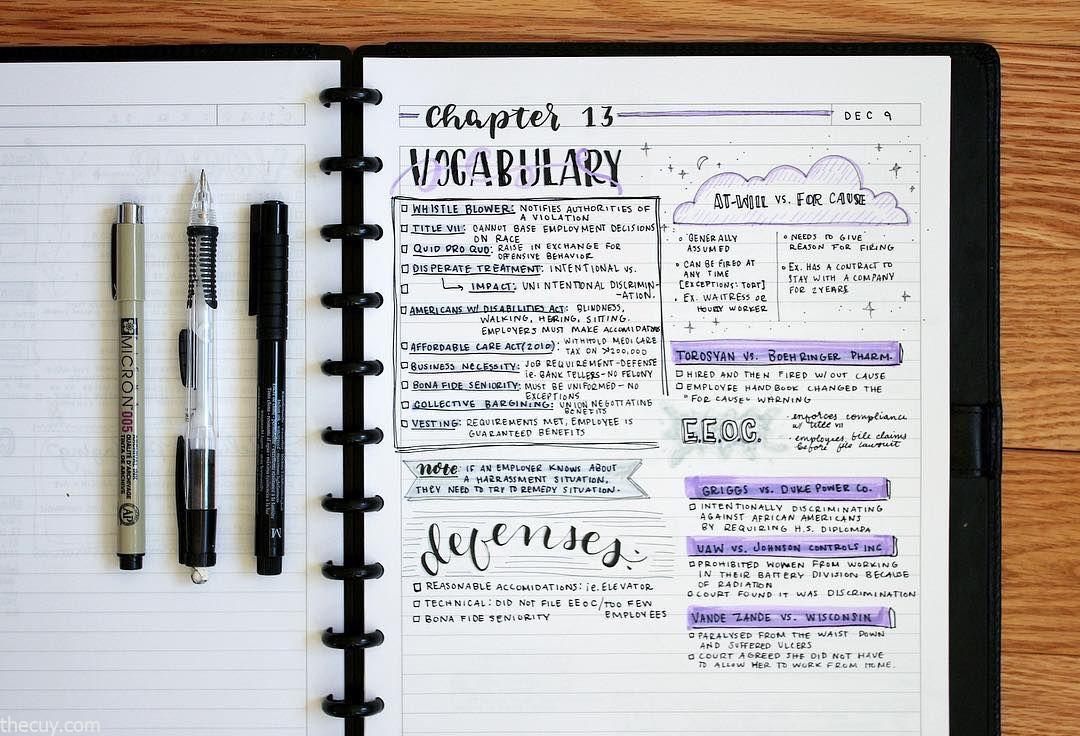 Chapter 13
DEC 9
VOCABULARY
WHISTLE BLOWER: NOTIFIES AUTHORITIES OF
A VIOLATION
TITLE VII: CANNOT BASE EMPLOYMENT DECISIONS
ON RACE
QUID PRO QUO: RAISE IN EXCHANGE FOR
OFFENSIVE BEHAVIOR
DISPERATE TREATMENT: INTENTIONAL VS.
IMPACT: UNINTENTIONAL DISCRIMIN-
-ATION.
AMERICANS W/ DISABILITIES ACT: BLINDNESS,
WALKING, HERING, SITTING.
EMPLOYERS MUST MAKE ACCOMIDATIONS
AFFORDABLE CARE ACT (2010): WITHHOLD MEDICARE
TAX ON >200,000
BUSINESS NECESSITY: JOB REQUIREMENT-DEFENSE
ie. BANK TELLERS-NO FELONY
BONA FIDE SENIORITY: MUST BE UNIFORMED-NO
EXCEPTIONS
COLLECTIVE BARGINING: UNION NEGOTIATING
BENEFITS
VESTING: REQUIREMENTS MET, EMPLOYEE IS
GUARANTEED BENEFITS
note: IF AN EMPLOYER KNOWS ABOUT
A HARRASSMENT SITUATION,
THEY NEED TO TRY TO REMEDY SITUATION.
defenses:
REASONABLE ACCOMIDATIONS: i.e. ELEVATOR
TECHNICAL: DID NOT FILE EEOC/TOO FEW
EMPLOYEES
BONA FIDE SENIORITY
AT-WILL VS. FOR CAUSE
GENERALLY
ASSUMED
CAN BE FIRED AT
ANY TIME
[EXCEPTIONS: TORT]
EX. WAITRESS OR
HOURLY WORKER
NEEDS TO GIVE
REASON FOR FIRING
EX. HAS A CONTRACT TO
STAY WITH A COMPANY
FOR 2 YEARS
TOROSYAN VS. BOEHRINGER PHARM.
HIRED AND THEN FIRED W/OUT CAUSE
EMPLOYEE HANDBOOK CHANGED THE
"FOR CAUSE" WARNING
E.E.O.C.
enforces compliance
w/ title VII
employees file claims
before file lawsuit
GRIGGS VS. DUKE POWER CO.
INTENTIONALLY DISCRIMINATING
AGAINST AFRICAN AMERICANS
BY REQUIRING H.S. DIPLOMPA
UAW VS. JOHNSON CONTROLS INC
PROHIBITED WOMEN FROM WORKING
IN THEIR BATTERY DIVISION BECAUSE
OF RADIATION
COURT FOUND IT WAS DISCRIMINATION
VANDE ZANDE VS. WISCONSIN
PARALYSED FROM THE WAIST DOWN
AND SUFFERED ULCERS
COURT AGREED SHE DID NOT HAVE
TO ALLOW HER TO WORK FROM HOME.
MICRON 005
thecuy.com